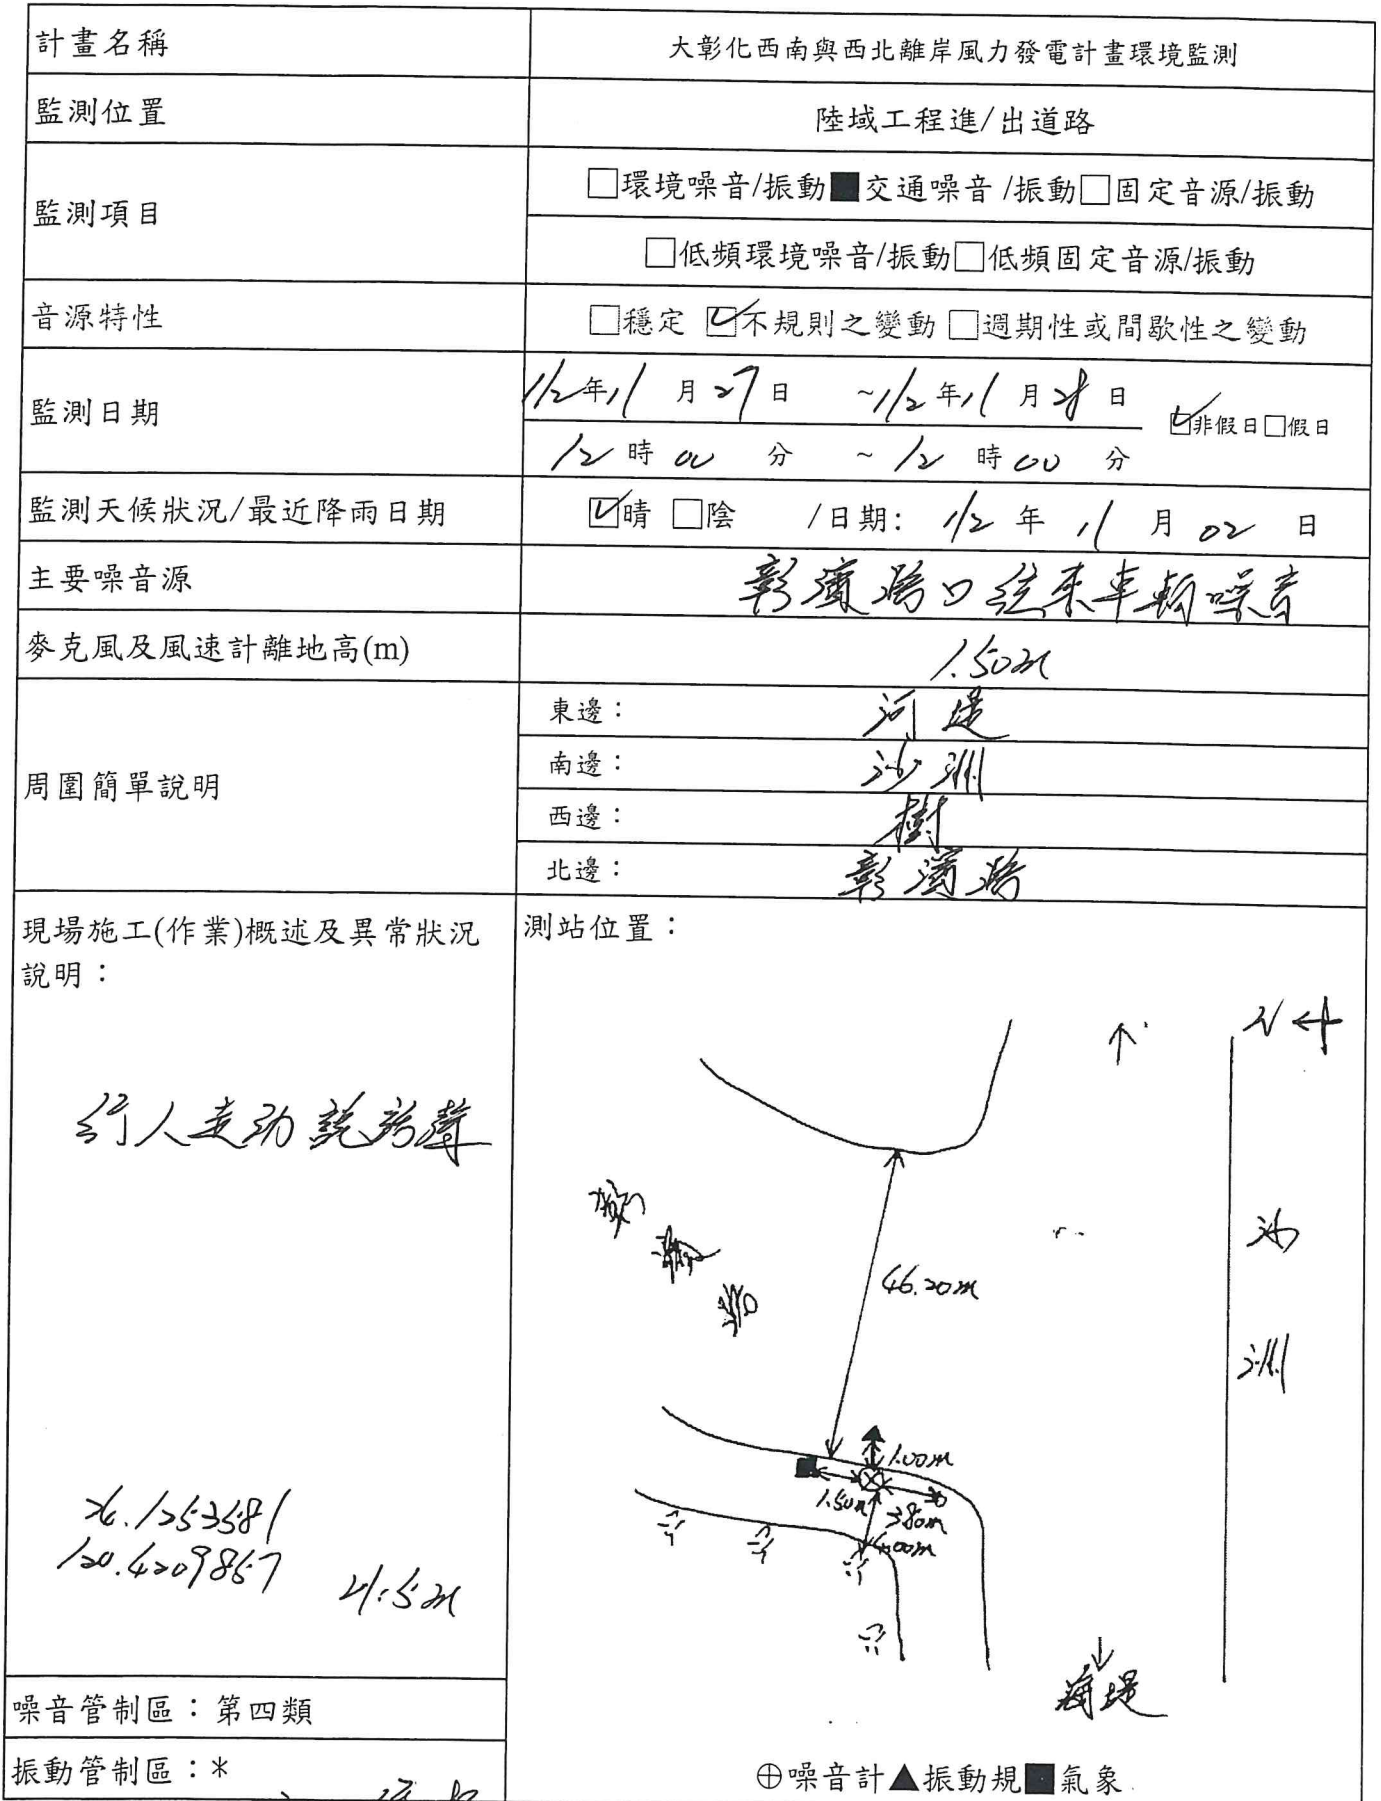 計畫名稱
大彰化西南與西北離岸風力發電計畫環境監測
監測位置
陸域工程進/出道路
監測項目
□環境噪音/振動■交通噪音/振動□固定音源/振動
□低頻環境噪音/振動□低頻固定音源/振動
音源特性
□穩定 ☑不規則之變動 □週期性或間歇性之變動
監測日期
112年11月27日 ~112年11月28日
☑非假日□假日
12時00分 ~ 12時00分
監測天候狀況/最近降雨日期
☑晴 □陰 /日期: 112年11月02日
主要噪音源
彰濱路口往來車輛噪音
麥克風及風速計離地高(m)
1.50m
周圍簡單說明
東邊：河堤
南邊：沙洲
西邊：樹
北邊：彰濱路
現場施工(作業)概述及異常狀況
說明：
行人走動說話聲
測站位置：
N
彰濱路
46.20m
沙洲
1.00m
1.50m
3.80m
海堤
噪音管制區：第四類
振動管制區：*
⊕噪音計▲振動規■氣象